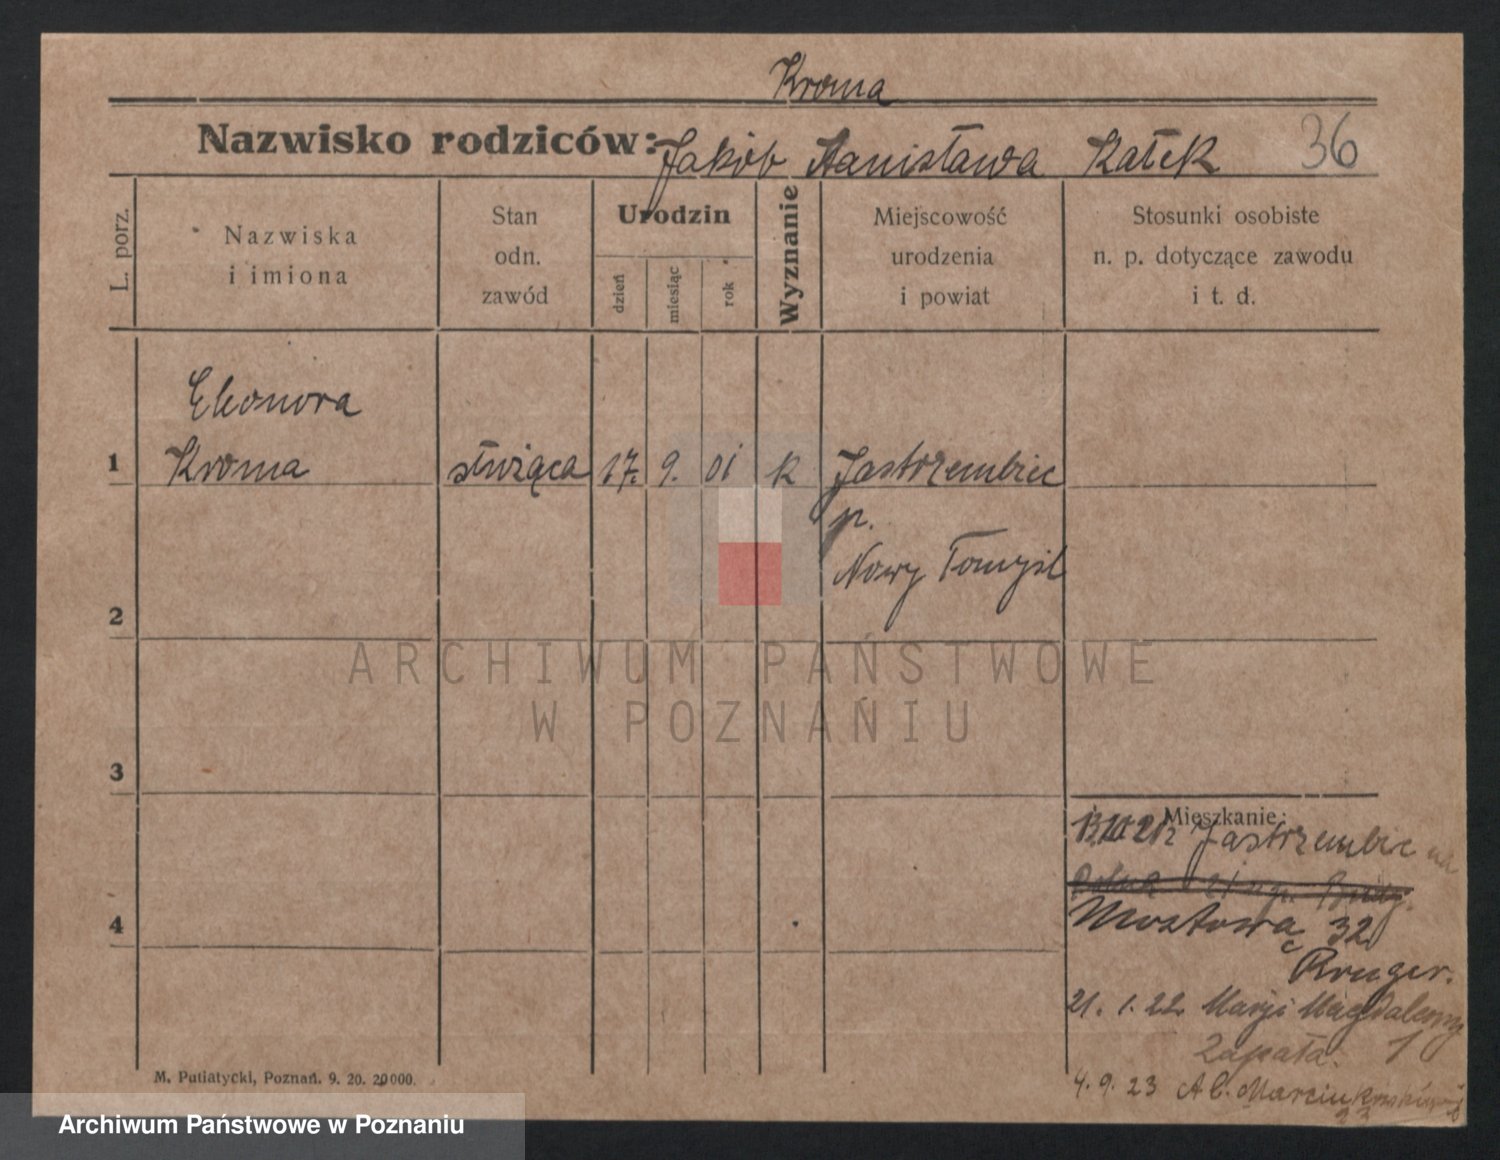 Kroma
Nazwisko rodziców: Jakób Stanisława Kałek 36
L. porz.
Nazwiska
i imiona
Stan
odn.
zawód
Urodzin
dzień
miesiąc
rok
Wyznanie
Miejscowość
urodzenia
i powiat
Stosunki osobiste
n. p. dotyczące zawodu
i t. d.
Eleonora
1 Kroma służąca 17. 9. 01 k Jastrzembiec
p.
Nowy Tomyśl
2
3
4
ARCHIWUM PAŃSTWOWE
W POZNANIU
Mieszkanie:
Jastrzembiec
Mostowa 32
Kruger.
21. 1. 22 Marji Magdaleny 1
Zapała.
4. 9. 23 Al. Marcinkowskiego
23
M. Putiatycki, Poznań. 9. 20. 20000.
Archiwum Państwowe w Poznaniu